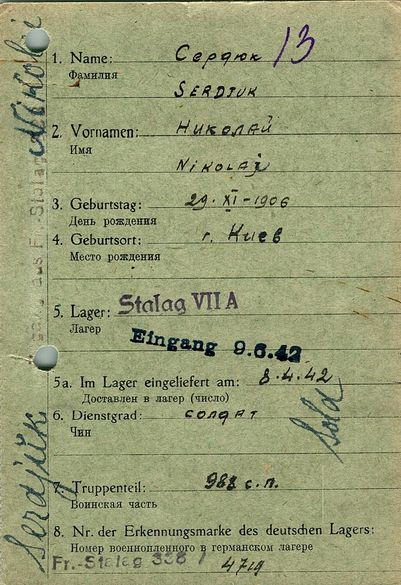 13
1. Name: Сердюк
Фамилия
SERDJUK
2. Vornamen: Николай
Имя
NIKOLAJ
3. Geburtstag: 29. XI - 1906
День рождения
4. Geburtsort: г. Киев
Место рождения
5. Lager: Stalag VII A
Лагер
Eingang 9.6.42
5a. Im Lager eingeliefert am: 8.4.42
Доставлен в лагер (число)
6. Dienstgrad: солдат
Чин
Sold
7. Truppenteil: 988 с.п.
Воинская часть
8. Nr. der Erkennungsmarke des deutschen Lagers:
Номер военнопленного в германском лагере
Fr.-Stalag 338 /
Serdjuk